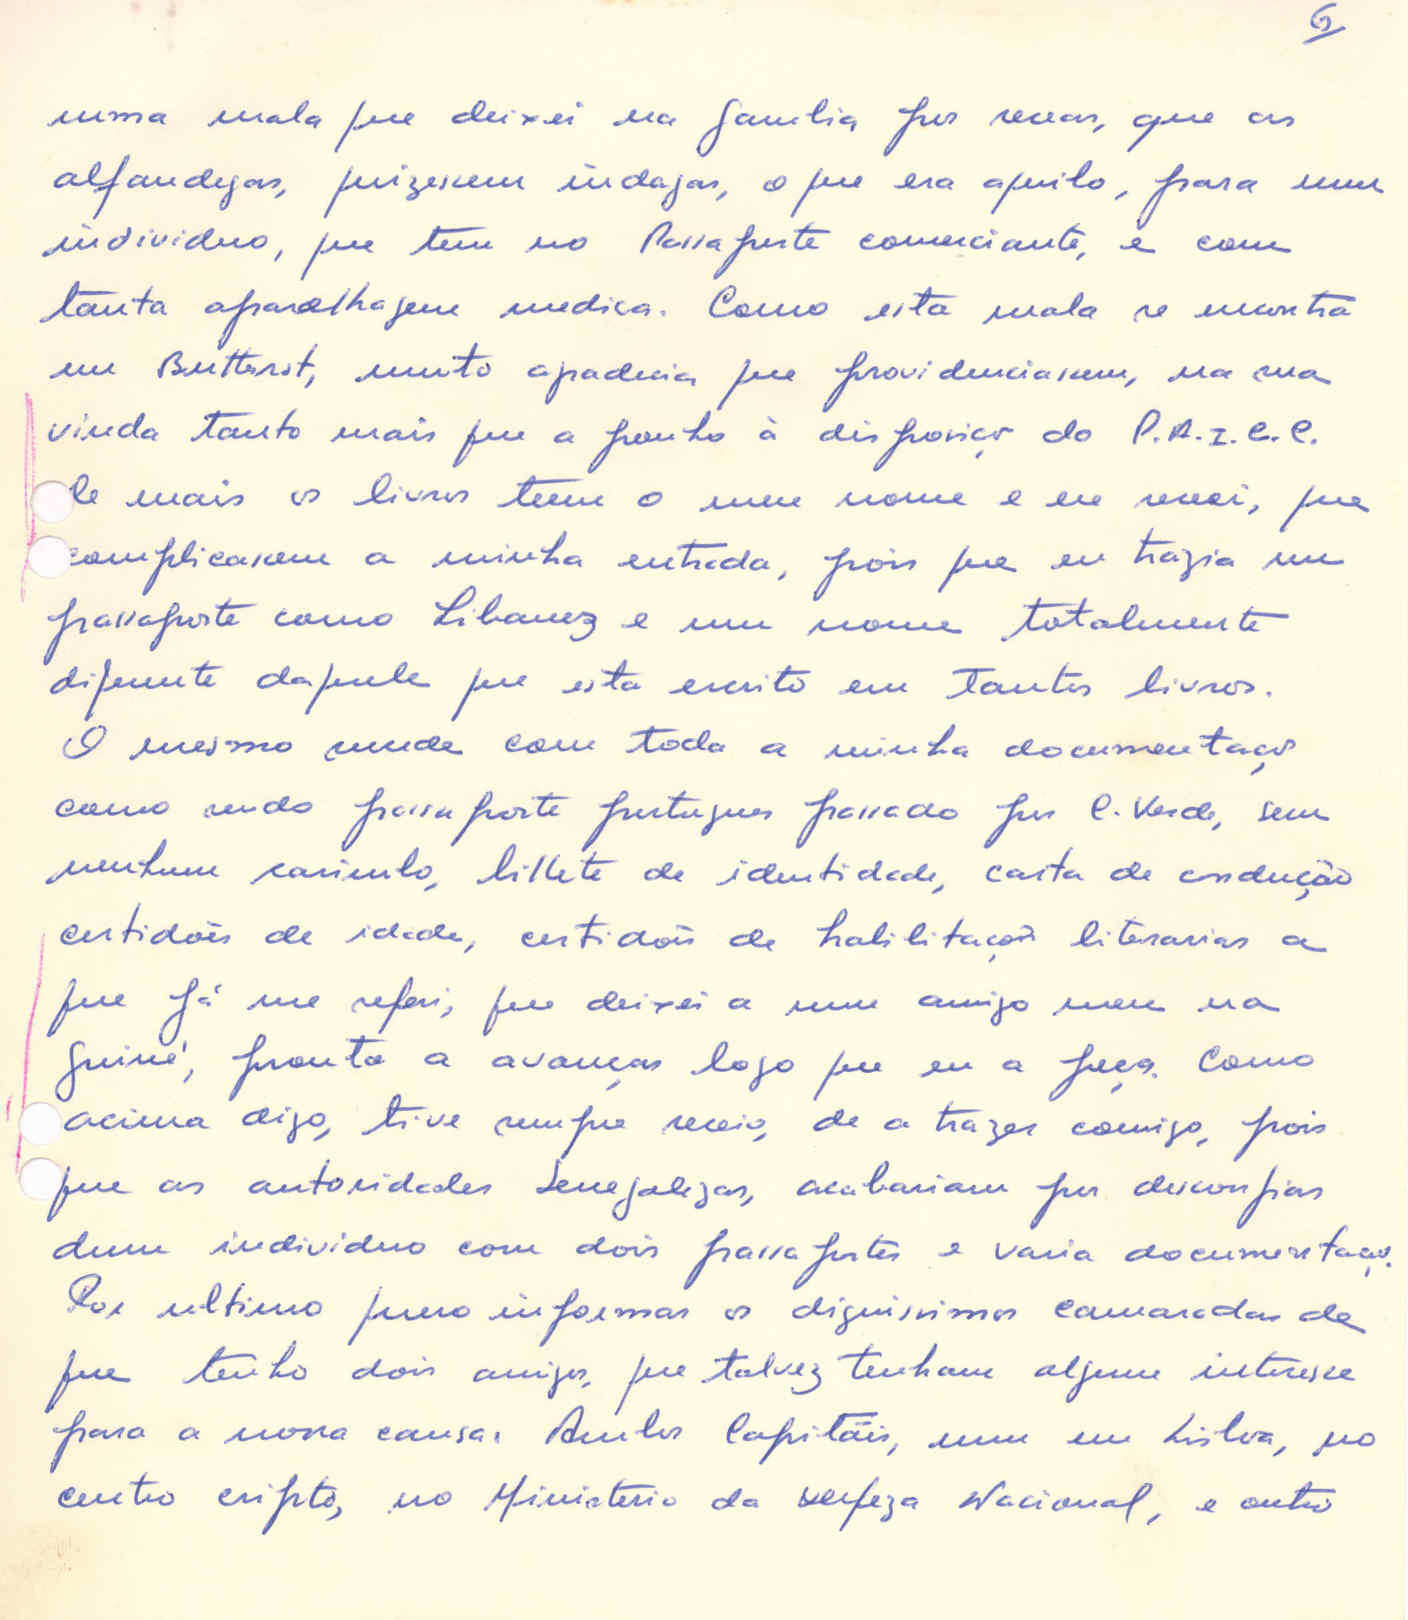 6
numa mala que deixei na Gambia por recear, que as
alfandegas, quizessem indagar, o que era aquilo, para um
individuo, que tem no Passaporte comerciante, e com
tanta aparelhagem medica. Como esta mala se encontra
em muito agradecia que providenciassem, na sua
vinda tanto mais que a ponho à disposição do P.A.I.G.C.
De mais os livros teem o meu nome e eu receei, que
complicassem a minha entrada, pois que eu trazia um
passaporte como Libanez e um nome totalmente
diferente daquele que esta escrito em tantos livros.
O mesmo sucede com toda a minha documentação
como sendo passaporte portugues passado por C. Verde, sem
nenhum carimbo, bilhete de identidade, carta de condução
certidões de idade, certidões de habilitações literarias a
que já me referi, que deixei a um amigo meu na
Guiné, pronta a avançar logo que eu a peça. Como
acima digo, tive sempre receio, de a trazer comigo, pois
que as autoridades Senegalezas, acabariam por desconfiar
dum individuo com dois passaportes e varia documentação.
Por ultimo quero informar os dignissimos camaradas de
que tenho dois amigos, que talvez tenham algum interesse
para a nossa causa. Ambos Capitães, um em Lisboa, no
centro cripto, no Ministerio da Defeza Nacional, e outro